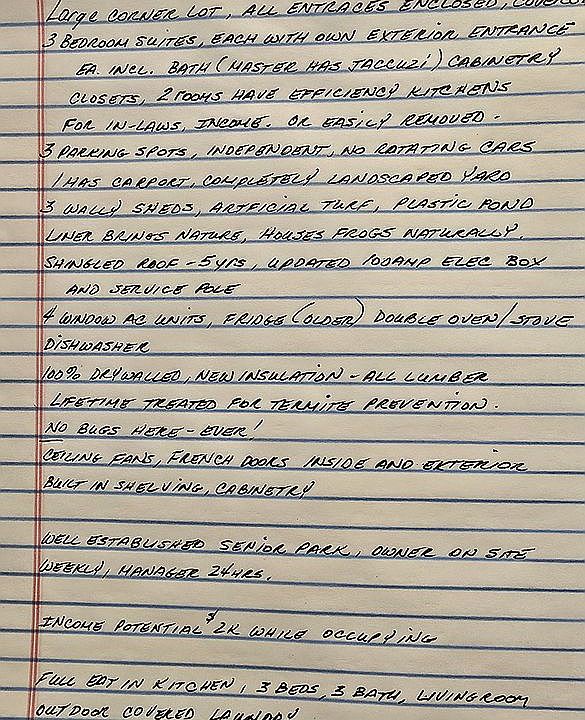 LARGE CORNER LOT, ALL ENTRACES ENCLOSED, COVERED
3 BEDROOM SUITES, EACH WITH OWN EXTERIOR ENTRANCE
EA. INCL. BATH (MASTER HAS JACCUZI) CABINETRY
CLOSETS, 2 ROOMS HAVE EFFICIENCY KITCHENS
FOR IN-LAWS, INCOME. OR EASILY REMOVED.
3 PARKING SPOTS, INDEPENDENT, NO ROTATING CARS
1 HAS CARPORT, COMPLETELY LANDSCAPED YARD
3 WALLY SHEDS, ARTFICIAL TURF, PLASTIC POND
LINER BRINGS NATURE, HOUSES FROGS NATURALLY.
SHINGLED ROOF - 5 YRS, UPDATED 100AMP ELEC BOX
AND SERVICE POLE
4 WNDOW AC UNITS, FRIDGE (OLDER) DOUBLE OVEN/STOVE
DISHWASHER
100% DRYWALLED, NEW INSULATION - ALL LUMBER
LIFETIME TREATED FOR TERMITE PREVENTION.
NO BUGS HERE - EVER!
CEILING FANS, FRENCH DOORS INSIDE AND EXTERIOR
BUILT IN SHELVING, CABINETRY
WELL ESTABLISHED SENIOR PARK, OWNER ON SITE
WEEKLY, MANAGER 24HRS.
INCOME POTENTIAL $2K WHILE OCCUPYING
FULL EAT IN KITCHEN, 3 BEDS, 3 BATH, LIVINGROOM
OUTDOOR COVERED LAUNDRY